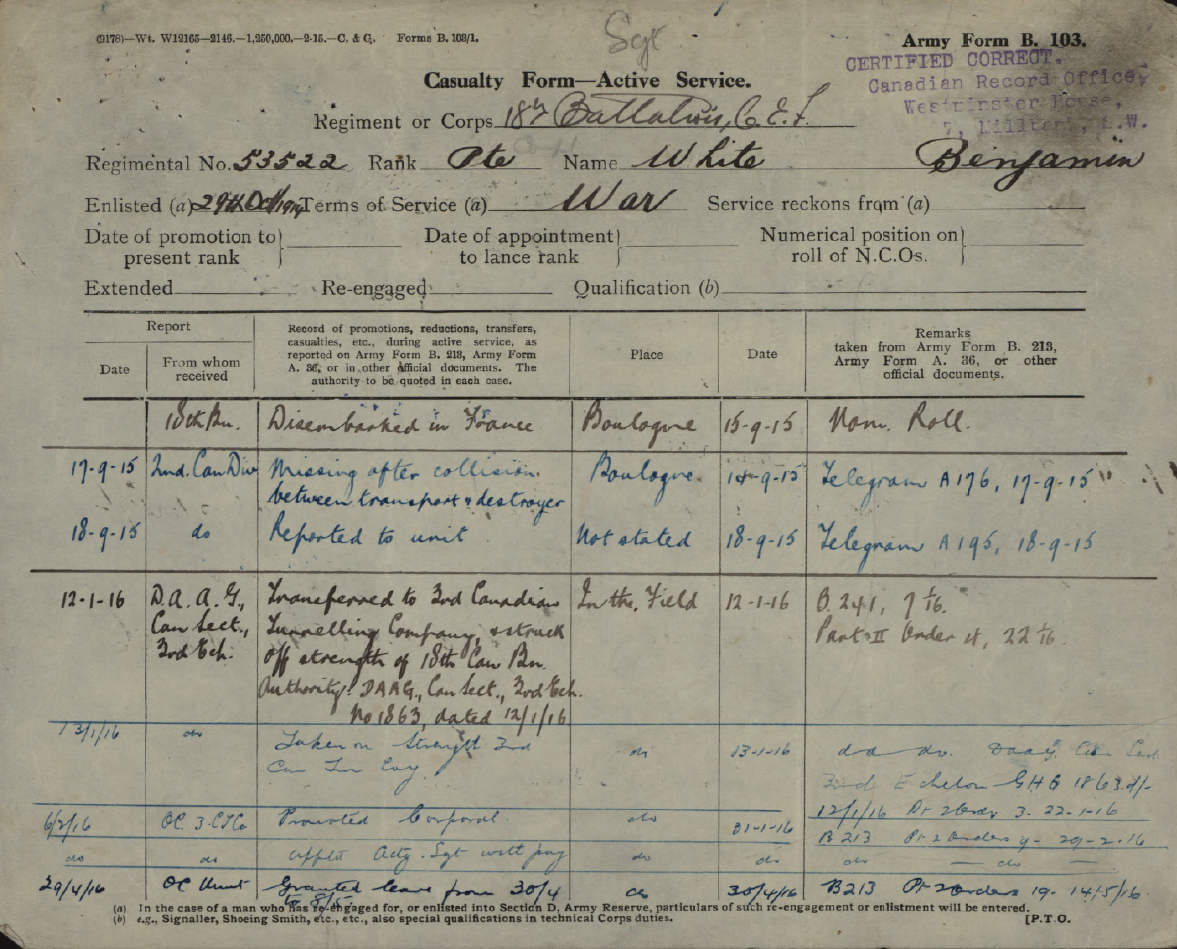 (9178)—Wt. W12165—2146.—1,250,000.—2-15.—C. & G. Forms B. 103/1.
Sgt
Army Form B. 103.
CERTIFIED CORRECT.
Canadian Record Office,
Westminster House,
7, Millbank, S.W.
Casualty Form—Active Service.
Regiment or Corps 18th Battalion, C.E.F.
Regimental No. 53522 Rank Pte Name White Benjamin
Enlisted (a) 29th Oct 1914 Terms of Service (a) War Service reckons from (a)
Date of promotion to } Date of appointment } Numerical position on }
present rank to lance rank roll of N.C.Os.
Extended Re-engaged Qualification (b)
Report
Date
From whom
received
Record of promotions, reductions, transfers,
casualties, etc., during active service, as
reported on Army Form B. 213, Army Form
A. 36, or in other official documents. The
authority to be quoted in each case.
Place
Date
Remarks
taken from Army Form B. 213,
Army Form A. 36, or other
official documents.
18th Bn. Disembarked in France Boulogne 15-9-15 Nom. Roll.
17-9-15 2nd. Can Div Missing after collision Boulogne 14-9-15 Telegram A176, 17-9-15
between transport & destroyer
18-9-15 do Reported to unit Not stated 18-9-15 Telegram A195, 18-9-15
12-1-16 D.A.A.G., Transferred to 3rd Canadian In the Field 12-1-16 B.241, 7/1/16.
Can Sect., Tunnelling Company, & struck Part II Order 4, 22/1/16.
3rd Ech. off strength of 18th Can Bn.
Authority: DAAG., Can Sect., 3rd Ech.
No 1863, dated 12/1/16
13/1/16 do Taken on Strength 3rd do 13-1-16 do do. DAAG. Can Sec
Can Tun Coy. 3rd Echelon GHQ 1863.d/-
12/1/16 Pt 2 Order 3. 22-1-16
6/2/16 OC 3 CTCo Promoted Corporal. do 31-1-16 B213 Pt 2 Orders 9- 29-2-16
do do Appltd Actg. Sgt with pay do do do — do —
29/4/16 OC Unit Granted leave from 30/4 do 30/4/16 B213 Pt 2 Orders 19- 14/5/16
to 8/5.
(a) In the case of a man who has re-engaged for, or enlisted into Section D, Army Reserve, particulars of such re-engagement or enlistment will be entered.
(b) e.g., Signaller, Shoeing Smith, etc., etc., also special qualifications in technical Corps duties. [P.T.O.